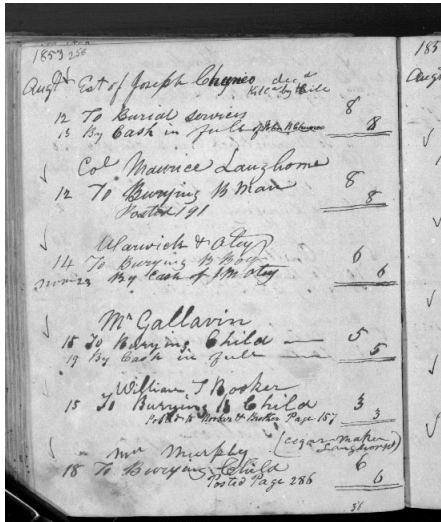 1853 256
Augt Est of Joseph Cheyneo decd
Killed by
12 To Burial services 8
13 By Cash in full of John B Cheyneo 8
Col Maurice Langhorne
12 To Burying B Man 8
Posted 191 8
Warwick & Otey
14 To Burying B Boy 6
Novr 23 By Cash of J M Otey 6
Mr Gallavin
18 To Burying Child 5
19 By Cash in full 5
William T Booker
15 To Burying B Child 3
Page 157 3
Mr Murphy (Cegar Maker
Langhorns)
18 To Burying Child 6
Posted Page 286 6
185
Augt